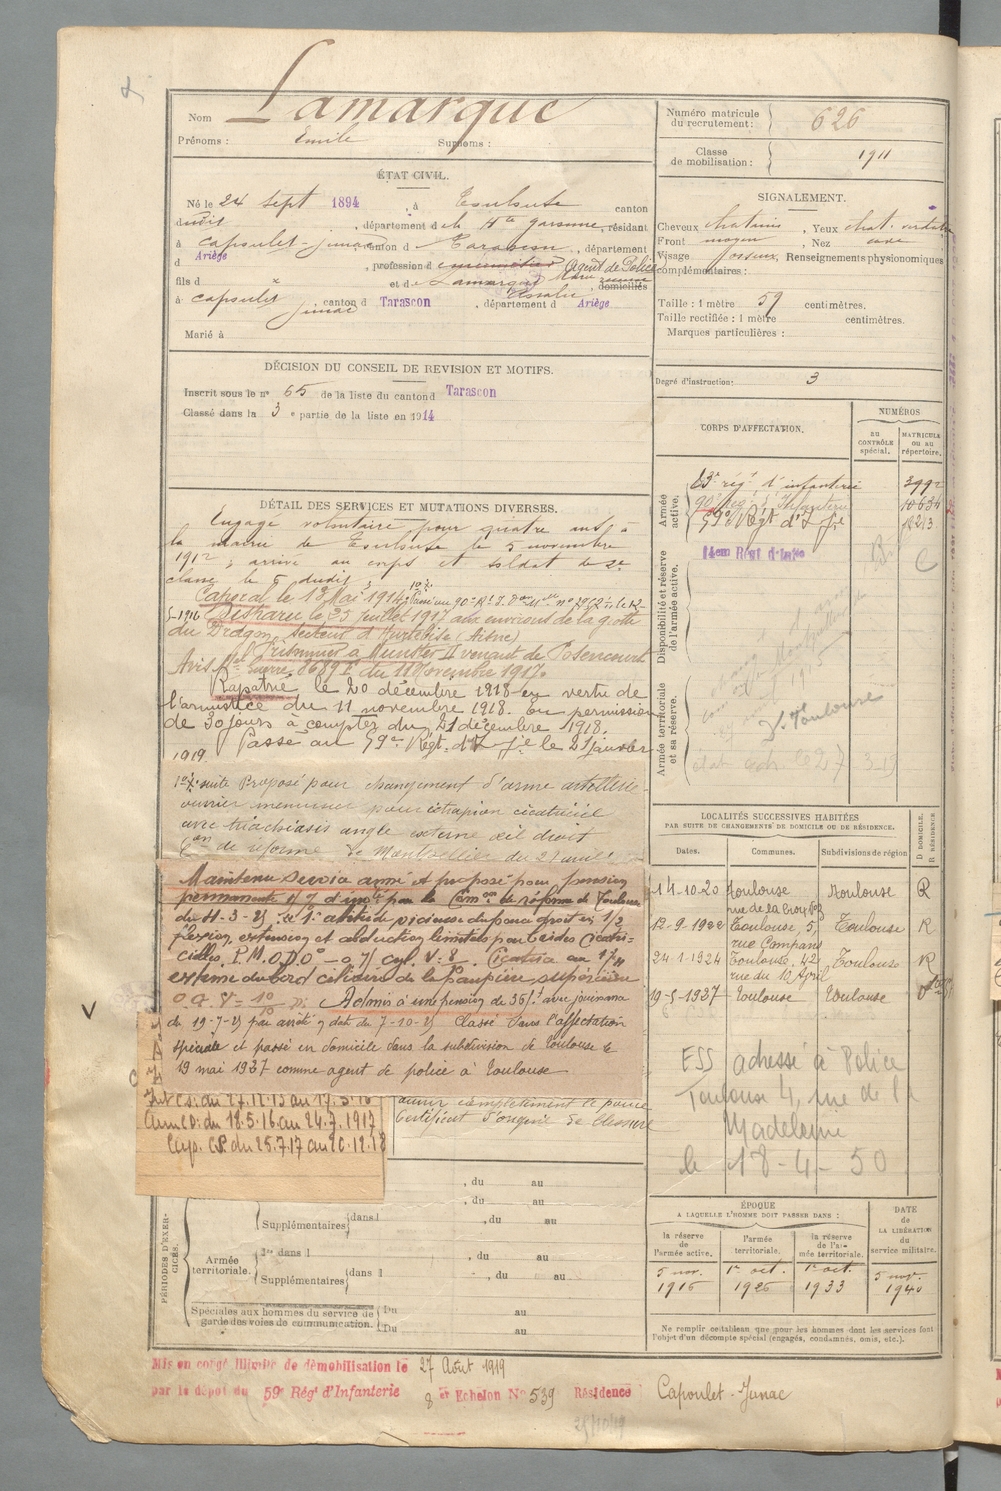 Nom Lamarque
Prénoms : Emile Surnoms :
Numéro matricule du recrutement : 626
Classe de mobilisation : 1911
ÉTAT CIVIL.
Né le 24 sept 1894, à Toulouse canton
dudit, département de la Hte garonne, résidant
à Capoulet-Junac canton de Tarascon, département
d Ariège, profession d Agent de Police
fils d et de Lamarque domiciliés
à Capoulet Junac, canton d Tarascon, département d Ariège
Marié à
SIGNALEMENT.
Cheveux chatains, Yeux chat.
Front moyen, Nez cave
Visage osseux, Renseignements physionomiques
complémentaires :
Taille : 1 mètre 59 centimètres.
Taille rectifiée : 1 mètre centimètres.
Marques particulières :
Degré d'instruction : 3
DÉCISION DU CONSEIL DE REVISION ET MOTIFS.
Inscrit sous le n° 65 de la liste du canton d Tarascon
Classé dans la 3 e partie de la liste en 1914
CORPS D'AFFECTATION.
NUMÉROS
au CONTRÔLE spécial.
MATRICULE ou au répertoire.
Armée active.
83e régt d'infanterie 3992
90e Régt d'Infanterie 10634
59e Régt d'Ie
Disponibilité et réserve de l'armée active.
14em Régt d'Infie
C
Armée territoriale et sa réserve.
Toulouse
DÉTAIL DES SERVICES ET MUTATIONS DIVERSES.
Engagé volontaire pour quatre ans à
la mairie de Toulouse le 5 novembre
1912 ; arrivé au corps et soldat de 2e
classe le 5 dudit ;
Caporal le 13 Mai 1914.
Disparu le 25 juillet 1917 aux environs de la grotte
du Dragon, secteur d'Hurtebise (Aisne)
Prisonnier à Munster II venant de
Avis guerre du 11 Novembre 1917.
Rapatrié le 20 décembre 1918 en vertu de
l'armistice du 11 novembre 1918. En permission
de 30 jours à compter du 21 décembre 1918.
Passé au 59e Regt d'Ie le 21 janvier
1919.
suite Proposé pour changement d'arme artillerie
ouvrier menuisier pour ectropion cicatriciel
avec trichiasis angle externe œil droit
Con de réforme de Montpellier du 27 avril
Maintenu service armé et proposé pour pension
permanente par la Comon de réforme de Toulouse
du 11-3-25 1° attitude vicieuse du pouce droit en 1/2
flexion, extension et abduction limitées par brides cicatri-
cielles.
externe du bord ciliaire de la paupière supérieure
Admis à une pension de 361f avec jouissance
du 19-7-25 par arrêté en date du 7-10-25 Classé dans l'affectation
spéciale et passé en domicile dans la subdivision de Toulouse le
19 mai 1937 comme agent de police à Toulouse
Int CS. du 27.12.15 au 17.5.16
Aum CD. du 18.5.16 au 24.7.1917
Cap. CS. du 25.7.17 au 20.12.18
ouvrir complètement le pouce
Certificat d'origine de blessure
LOCALITÉS SUCCESSIVES HABITÉES
PAR SUITE DE CHANGEMENTS DE DOMICILE OU DE RÉSIDENCE.
Dates. Communes. Subdivisions de région
D DOMICILE. R RÉSIDENCE
14-10-20 Toulouse rue de la Croix Toulouse R
12-9-1922 Toulouse, 5, rue Compans Toulouse R
24-1-1924 Toulouse, 42, rue du 10 Avril Toulouse R
19-5-1937 Toulouse Toulouse D
ESS adressé à Police
Toulouse 4, rue de la
Madeleine
le 18-4-50
ÉPOQUE
A LAQUELLE L'HOMME DOIT PASSER DANS :
la réserve de l'armée active. l'armée territoriale. la réserve de l'armée territoriale.
DATE de LA LIBÉRATION du service militaire.
5 nov. 1915 1er oct. 1926 1er oct. 1933 5 nov. 1940
Ne remplir ce tableau que pour les hommes dont les services font
l'objet d'un décompte spécial (engagés, condamnés, omis, etc.).
PÉRIODES D'EXERCICES.
, du au
, du au
Supplémentaires dans l , du au
Armée territoriale.
1re dans l , du au
Supplémentaires dans l , du au
Spéciales aux hommes du service de
garde des voies de communication.
Du au
Du au
Mis en congé illimité de démobilisation le 27 Août 1919
par le dépôt du 59e Régt d'Infanterie 8 er Echelon N° 539 Résidence Capoulet-Junac